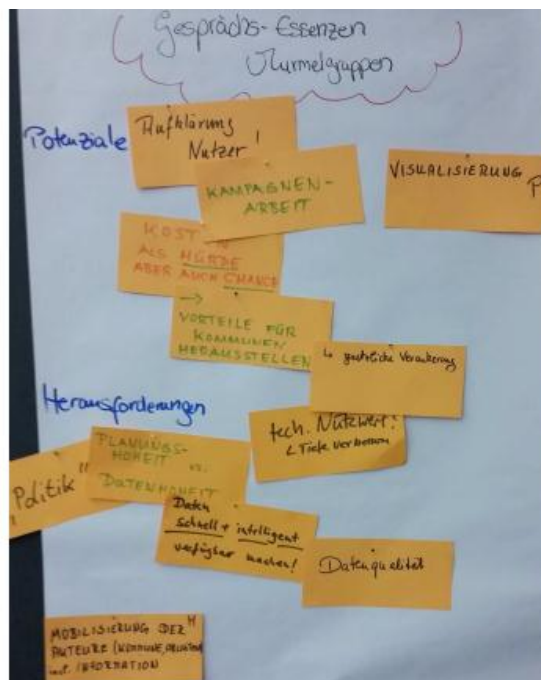 Gesprächs-Essenzen
Murmelgruppen
Potenziale
Aufklärung
Nutzer!
KAMPAGNEN-
ARBEIT
VISUALISIERUNG
P
KOSTEN
ALS HÜRDE
ABER AUCH CHANCE
→
VORTEILE FÜR
KOMMUNEN
HERAUSSTELLEN
↳ gesetzliche Verankerung
Herausforderungen
tech. Nutzwert?
Tiefe
PLANUNGS-
HOHEIT vs.
DATENHOHEIT
"Politik"
Daten
schnell + intelligent
verfügbar machen!
Datenqualität
MOBILISIERUNG DER
AKTEURE (KOMMUNE,
incl. INFORMATION